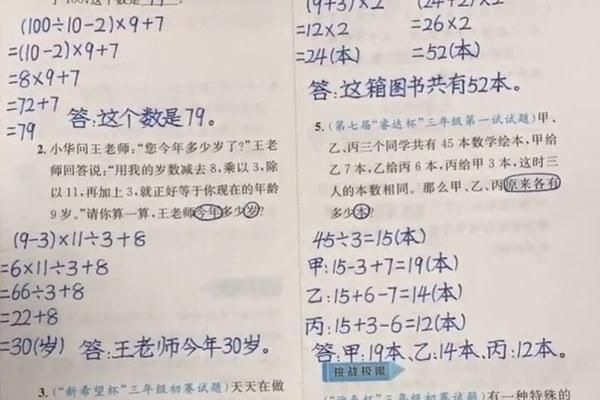 了100,这个数是79。
(100÷10-2)×9+7
=(10-2)×9+7
=8×9+7
=72+7
=79
答:这个数是79。
2. 小华问王老师:“您今年多少岁了?”王老
师回答说:“用我的岁数减去8,乘以3,除
以11,再加上3,就正好等于你现在的年龄
9岁。”请你算一算,王老师今年多少岁?
(9-3)×11÷3+8
=6×11÷3+8
=66÷3+8
=22+8
=30(岁)
答:王老师今年30岁。
3. (“新希望杯”三年级初赛试题)天天在做
(9+3)×2
=12×2
=24(本)
(24+2)×2
=26×2
=52(本)
答:这箱图书共有52本。
5. (第七届“睿达杯”三年级第一试试题)甲、
乙、丙三个同学共有45本数学绘本,甲给
乙7本,乙给丙6本,丙给甲3本,这时三
人的本数相同。那么甲、乙、丙原来各有
多少本?
45÷3=15(本)
甲:15-3+7=19(本)
乙:15+6-7=14(本)
丙:15+3-6=12(本)
答:甲:19本、乙:14本、丙:12本。
挑战极限
(“迎春杯”三年级初赛试题)有一种特殊的